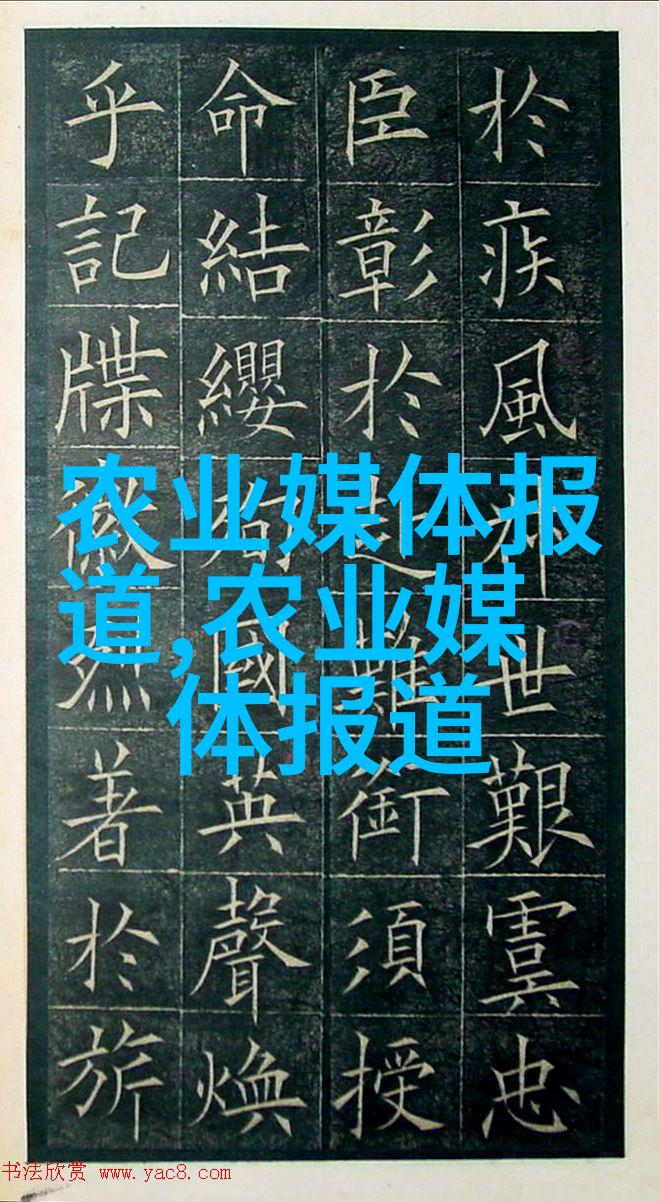 於疾風世艱虞忠
臣彰於難銜須授
命結纓國英聲煥
乎記牒徽烈著於旂
农业媒体报
道,农业媒
体报道
书法欣赏 www.yac8.com